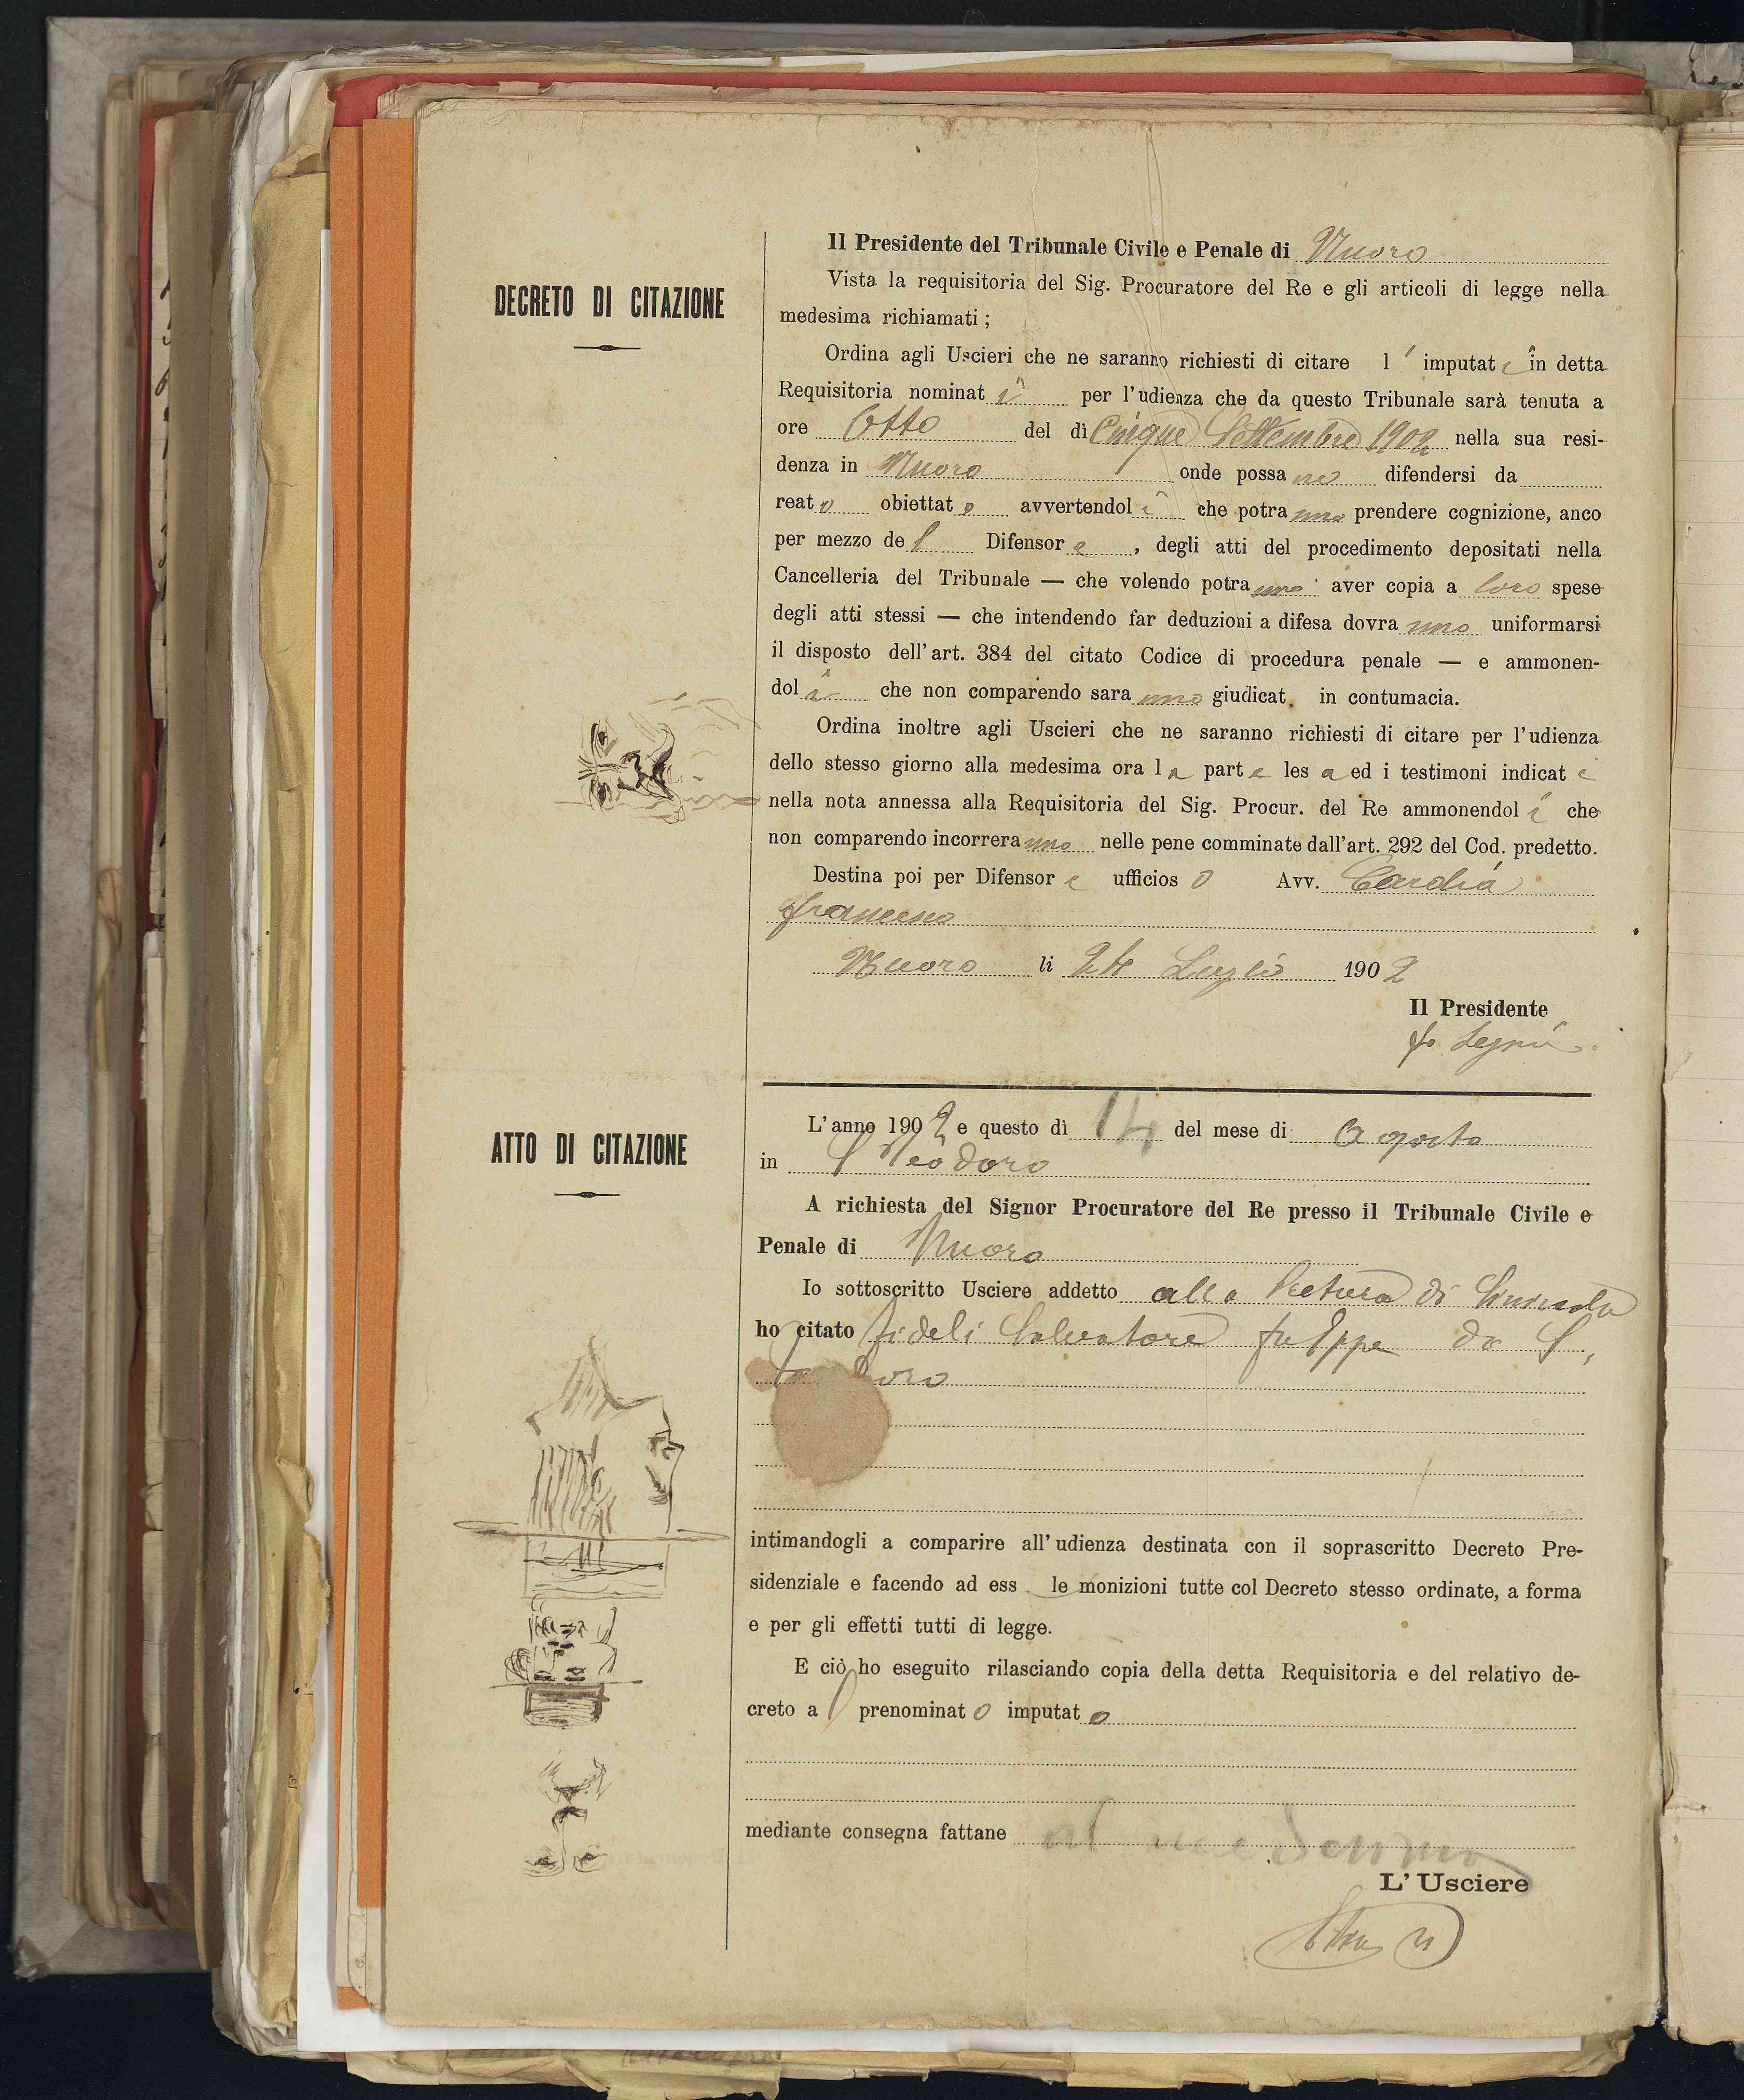 DECRETO DI CITAZIONE
Il Presidente del Tribunale Civile e Penale di Nuoro
Vista la requisitoria del Sig. Procuratore del Re e gli articoli di legge nella
medesima richiamati ;
Ordina agli Uscieri che ne saranno richiesti di citare l' imputati in detta
Requisitoria nominati per l'udienza che da questo Tribunale sarà tenuta a
ore Otto del dì Cinque Settembre 1902 nella sua resi-
denza in Nuoro onde possano difendersi da
reato obiettato avvertendoli che potranno prendere cognizione, anco
per mezzo del Difensore, degli atti del procedimento depositati nella
Cancelleria del Tribunale — che volendo potranno aver copia a loro spese
degli atti stessi — che intendendo far deduzioni a difesa dovranno uniformarsi
il disposto dell'art. 384 del citato Codice di procedura penale — e ammonen-
doli che non comparendo saranno giudicat. in contumacia.
Ordina inoltre agli Uscieri che ne saranno richiesti di citare per l'udienza
dello stesso giorno alla medesima ora la parte lesa ed i testimoni indicati
nella nota annessa alla Requisitoria del Sig. Procur. del Re ammonendoli che
non comparendo incorreranno nelle pene comminate dall'art. 292 del Cod. predetto.
Destina poi per Difensore ufficioso Avv. Cardia
Francesco
Nuoro li 24 Luglio 1902
Il Presidente
ATTO DI CITAZIONE
L'anno 1902 e questo dì 14 del mese di Agosto
in S Teodoro
A richiesta del Signor Procuratore del Re presso il Tribunale Civile e
Penale di Nuoro
Io sottoscritto Usciere addetto alla Pretura di Siniscola
ho citato Fideli Salvatore fu Gppe da S.
Teodoro
intimandogli a comparire all'udienza destinata con il soprascritto Decreto Pre-
sidenziale e facendo ad ess le monizioni tutte col Decreto stesso ordinate, a forma
e per gli effetti tutti di legge.
E ciò ho eseguito rilasciando copia della detta Requisitoria e del relativo de-
creto al prenominato imputato
mediante consegna fattane al medesimo
L'Usciere